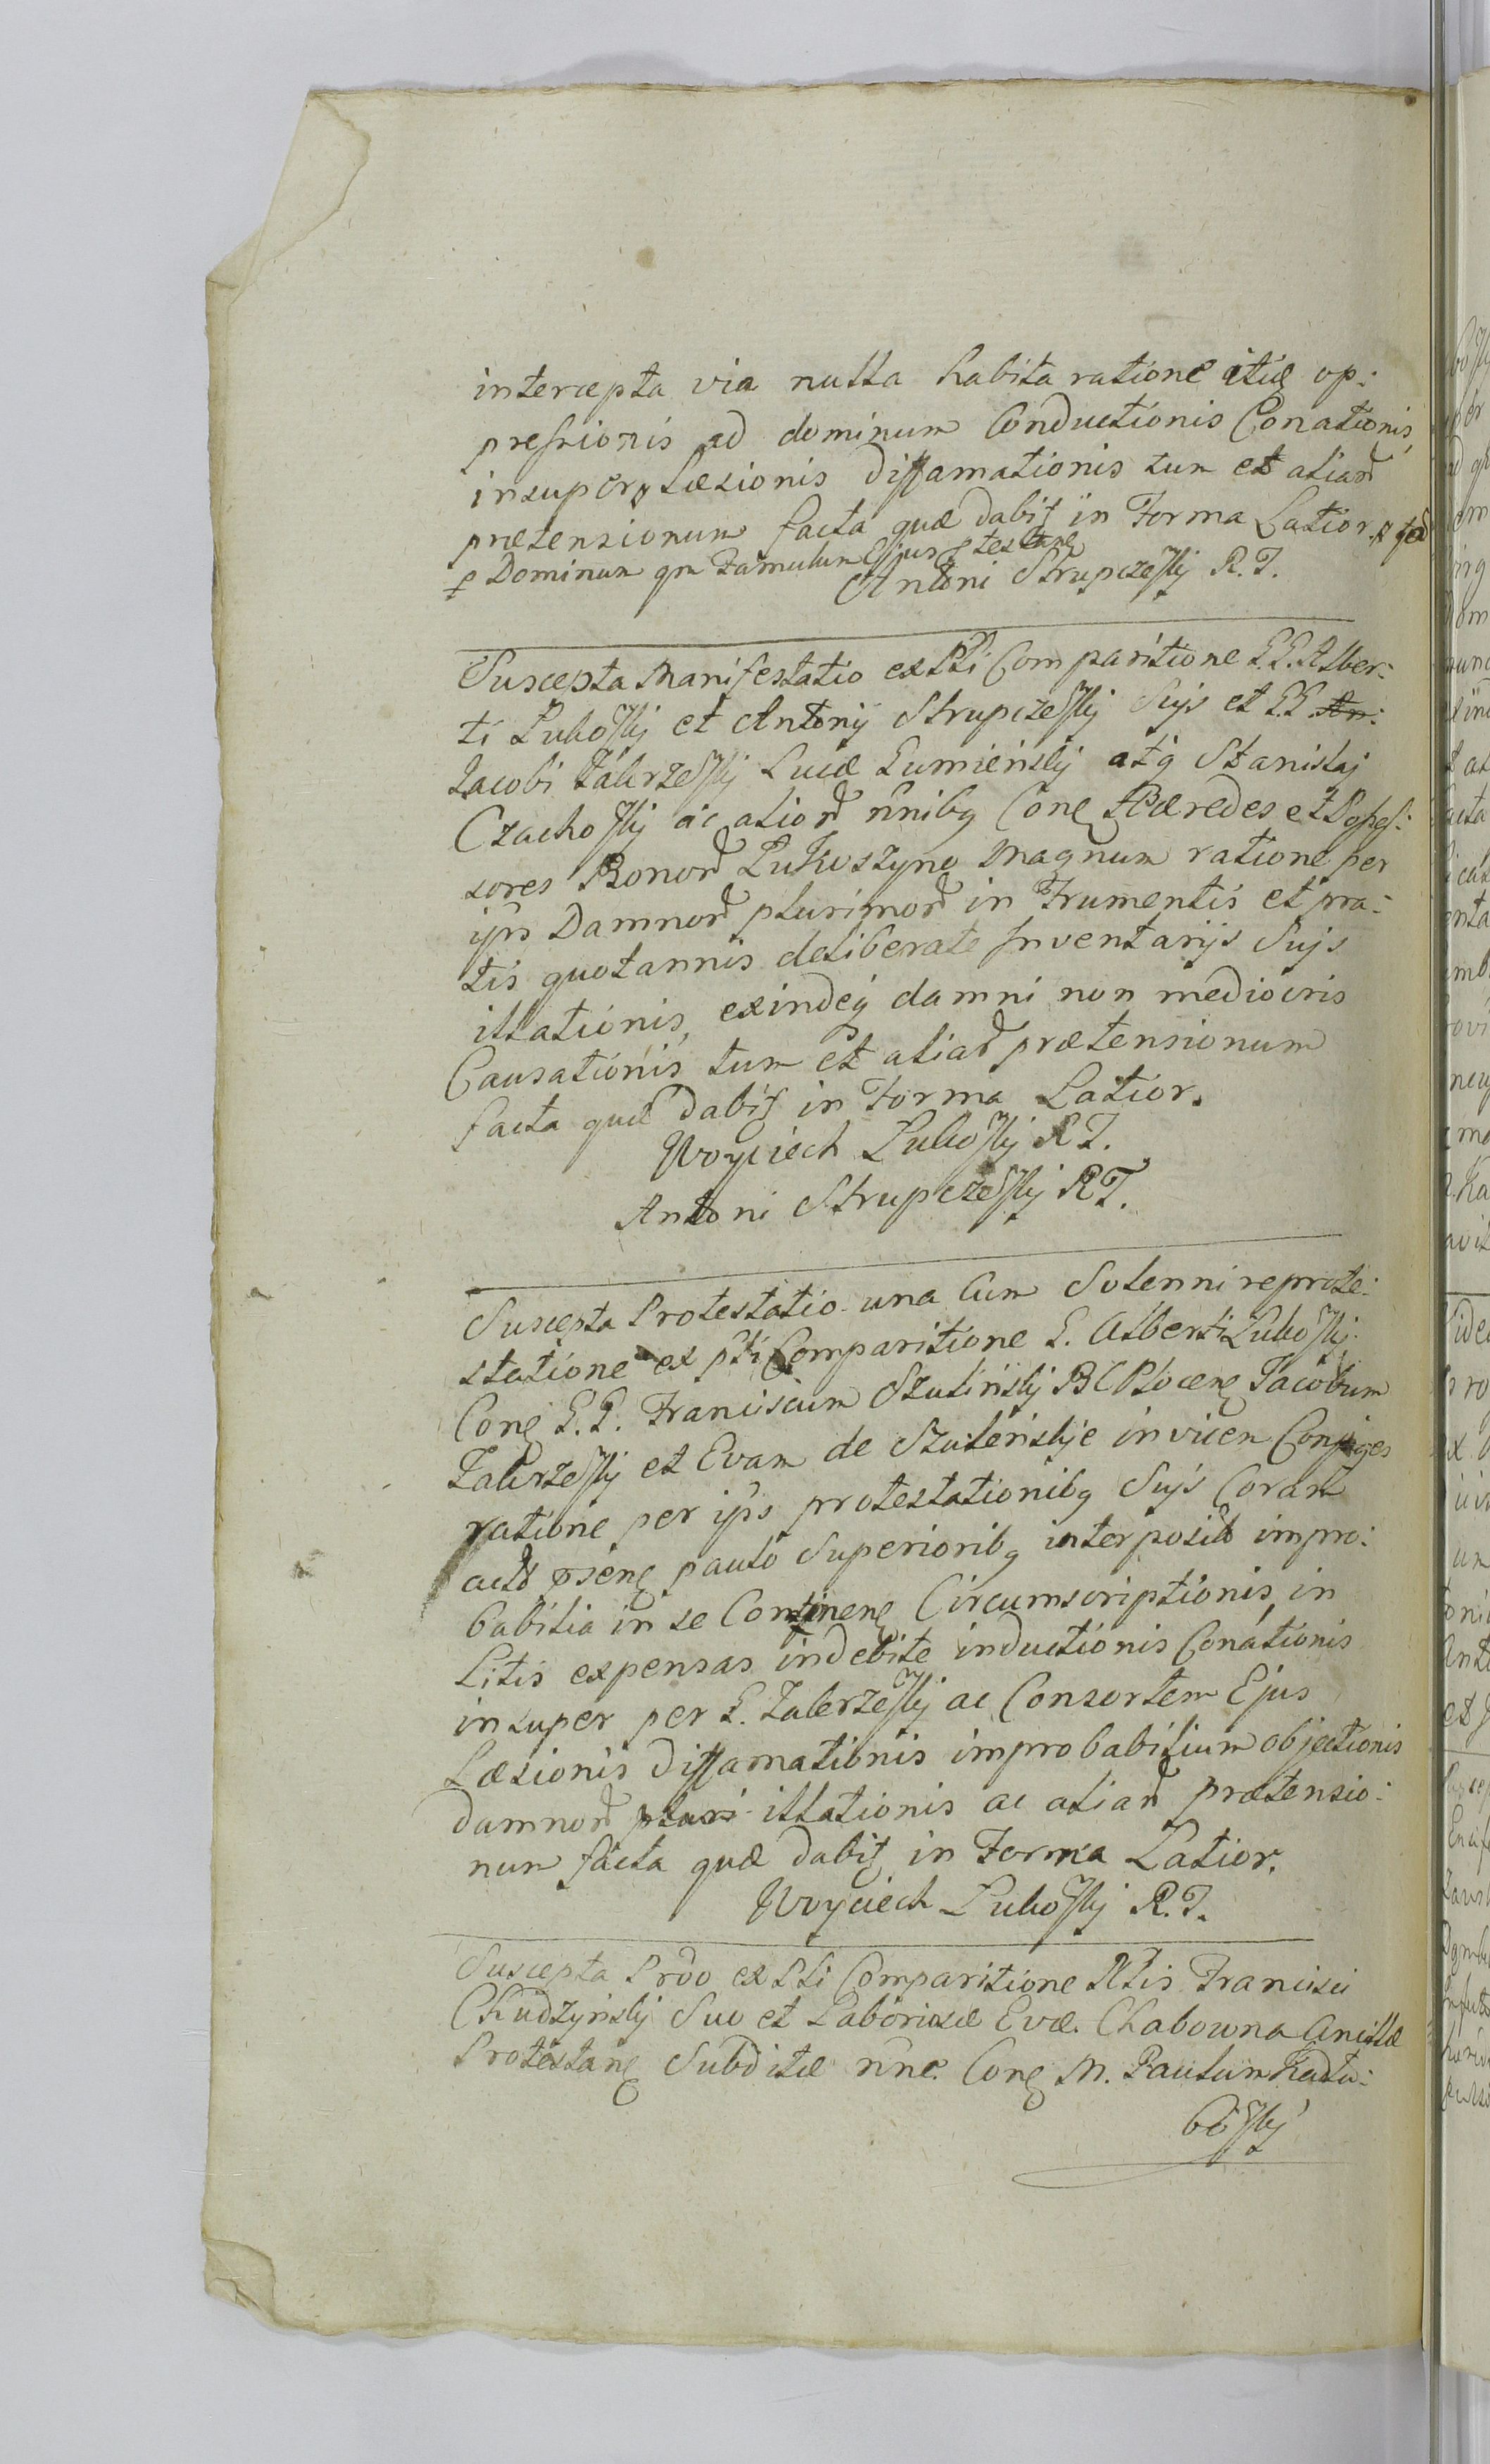 intercepta via nulla habita ratione itiæ op:
pressionis ad dominum Conductionis Conationis,
insuper Læsionis diffamationis tum et aliarū
prætensionum facta quæ dabit in Forma Latior.
Dominum qm Famulum Ejus
Antoni Strupczewskj R. T.
Suscepta Manifestatio ex Pti Comparitione G.G. Alber:
ti Lukowskj et Antonij Strupczewskj Sujs et G.G.
Jacobi Zakrzewskj Lucæ Gumieńskj atq Stanislaj
Czachowskj ac aliorū nnibq Conę Hæredes et Posses:
sores Bonorū Lukoszyno Magnum ratione per
ips Damnorū plurimorū in Frumentis et pra:
tis quotannis deliberate Inventarijs Sujs
illationis, exindeq damni non mediocris
Causationis tum et aliarū prætensionum
facta quæ dabit in Forma Latior.
Woyciech Lukowskj R T.
Antoni Strupczewskj R T.
Suscepta Protestatio una Cum Solenni reprote:
statione ex pti Comparitione G. Alberti Lukowskj
Conę G. G. Franciscum Szulińskj B C Plocenę Jacobum
Zakrzewskj et Evam de Szuleńskje invicem Conjuges
ratione per ips protestationibq Sujs Coram
actis psenę paulo Superioribq interposit impro:
babilia in se Continenę Circumscriptionis, in
Litis expensas indebite inductionis Conationis
insuper per G. Zakrzewskj ac Consortem Ejus
Læsionis diffamationis improbabilium objectionis
damnorū pluri illationis ac aliarū prætensio:
num facta quæ dabit in Forma Latior.
Woyciech Lukowskj R. T.
Suscepta Prōo ex Pti Comparitione Nlis Francisci
Chudzyńskj Suo et Laboriosæ Evæ Chabowna Ancillæ
Protestanę Subditæ nne. Conę M. Paulum Kadłu:
bowskj